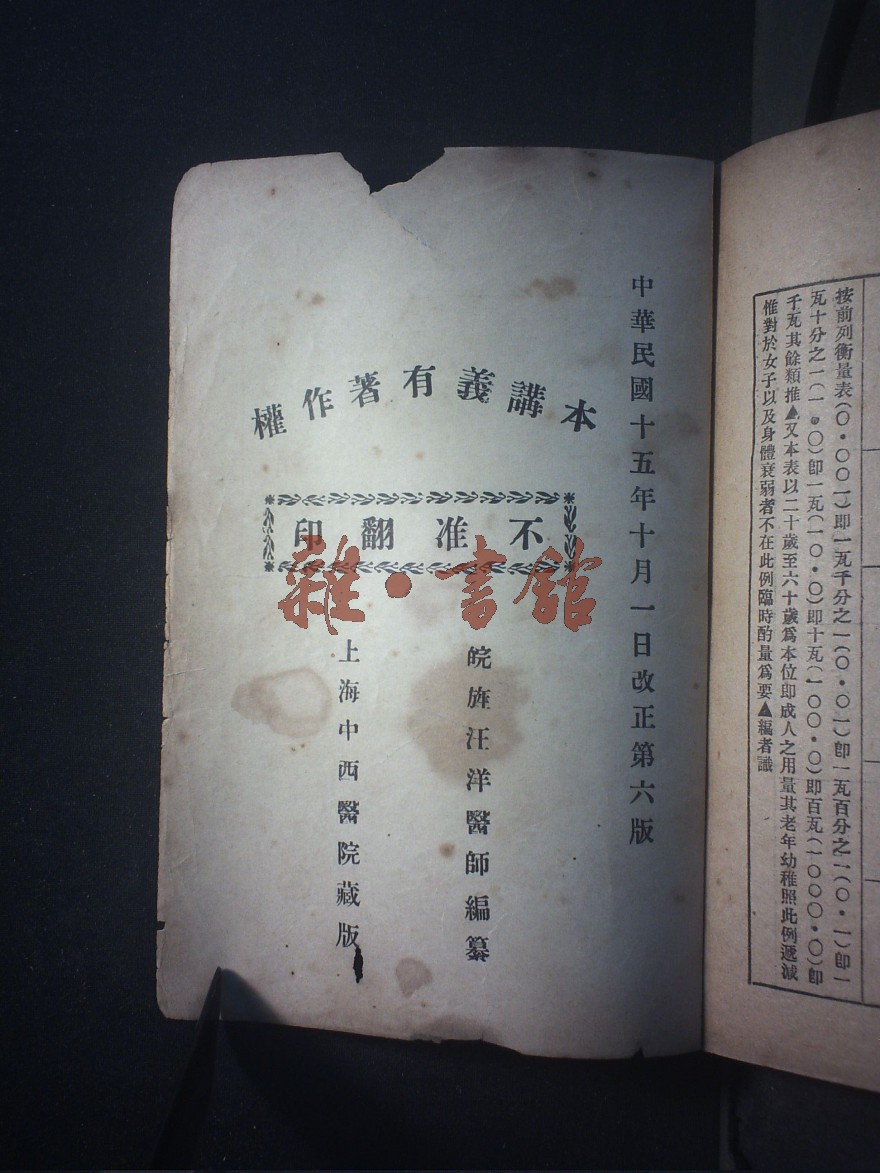 按前列衡量表(〇·〇〇一)即一瓦千分之一(〇·〇一)即一瓦百分之一(〇·一)即一
瓦十分之一(一·〇)即一瓦(一〇·〇)即十瓦(一〇〇·〇)即百瓦(一〇〇〇·〇)即
千瓦其餘類推▲又本表以二十歲至六十歲爲本位即成人之用量其老年幼稚照此例遞減
惟對於女子以及身體衰弱者不在此例臨時酌量爲要▲編者識
中華民國十五年十月一日改正第六版
本講義有著作權
不准翻印
雜·書館
皖旌汪洋醫師編纂
上海中西醫院藏版